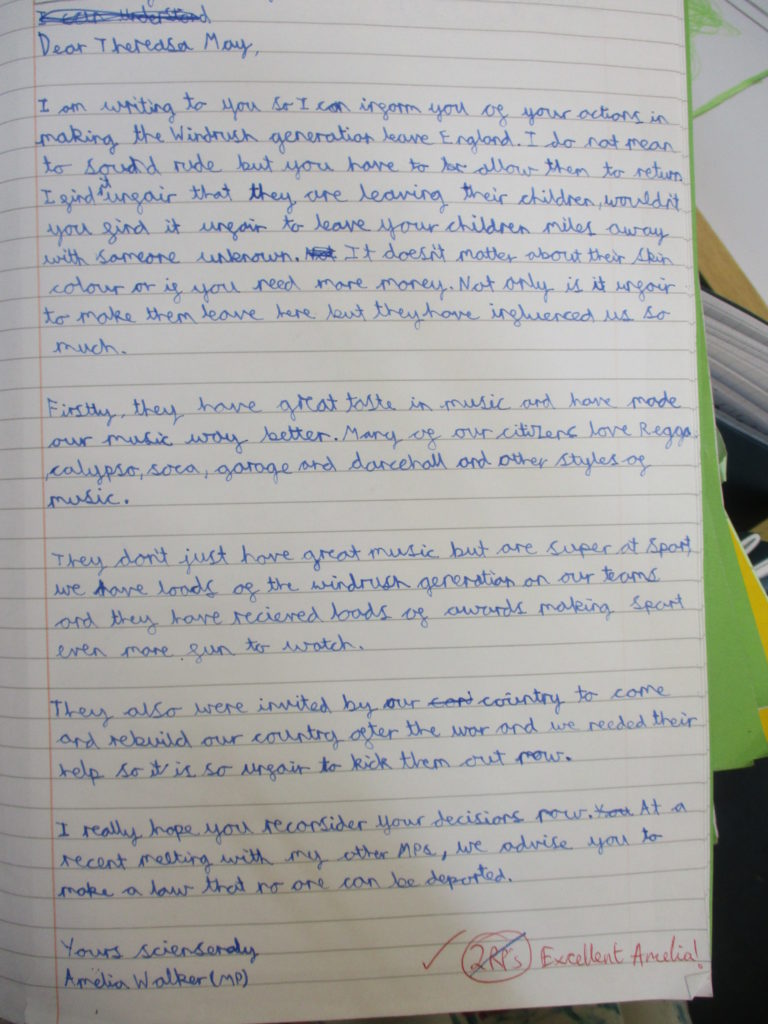 I can understand
Dear Thereasa May,
I am writing to you so I can inform you of your actions in
making the Windrush generation leave England. I do not mean
to sound rude but you have to be allow them to return
I find it unfair that they are leaving their children, wouldn't
you find it unfair to leave your children miles away
with someone unknown. Not It doesn't matter about their skin
colour or if you need more money. Not only is it unfair
to make them leave here but they have influenced us so
much.
Firstly, they have great taste in music and have made
our music way better. Many of our citizens love Regga,
calypso, soca, garage and dancehall and other styles of
music.
They don't just have great music but are super at sport,
we have loads of the windrush generation on our teams
and they have recieved loads of awards making sport
even more fun to watch.
They also were invited by our country to come
and rebuild our country after the war and we needed their
help so it is so unfair to kick them out now.
I really hope you reconsider your decisions now. You At a
recent melting with my other MPs, we advise you to
make a law that no one can be deported.
Yours scienserely
Amelia Walker (MP)
✓ 2RP's Excellent Amelia!